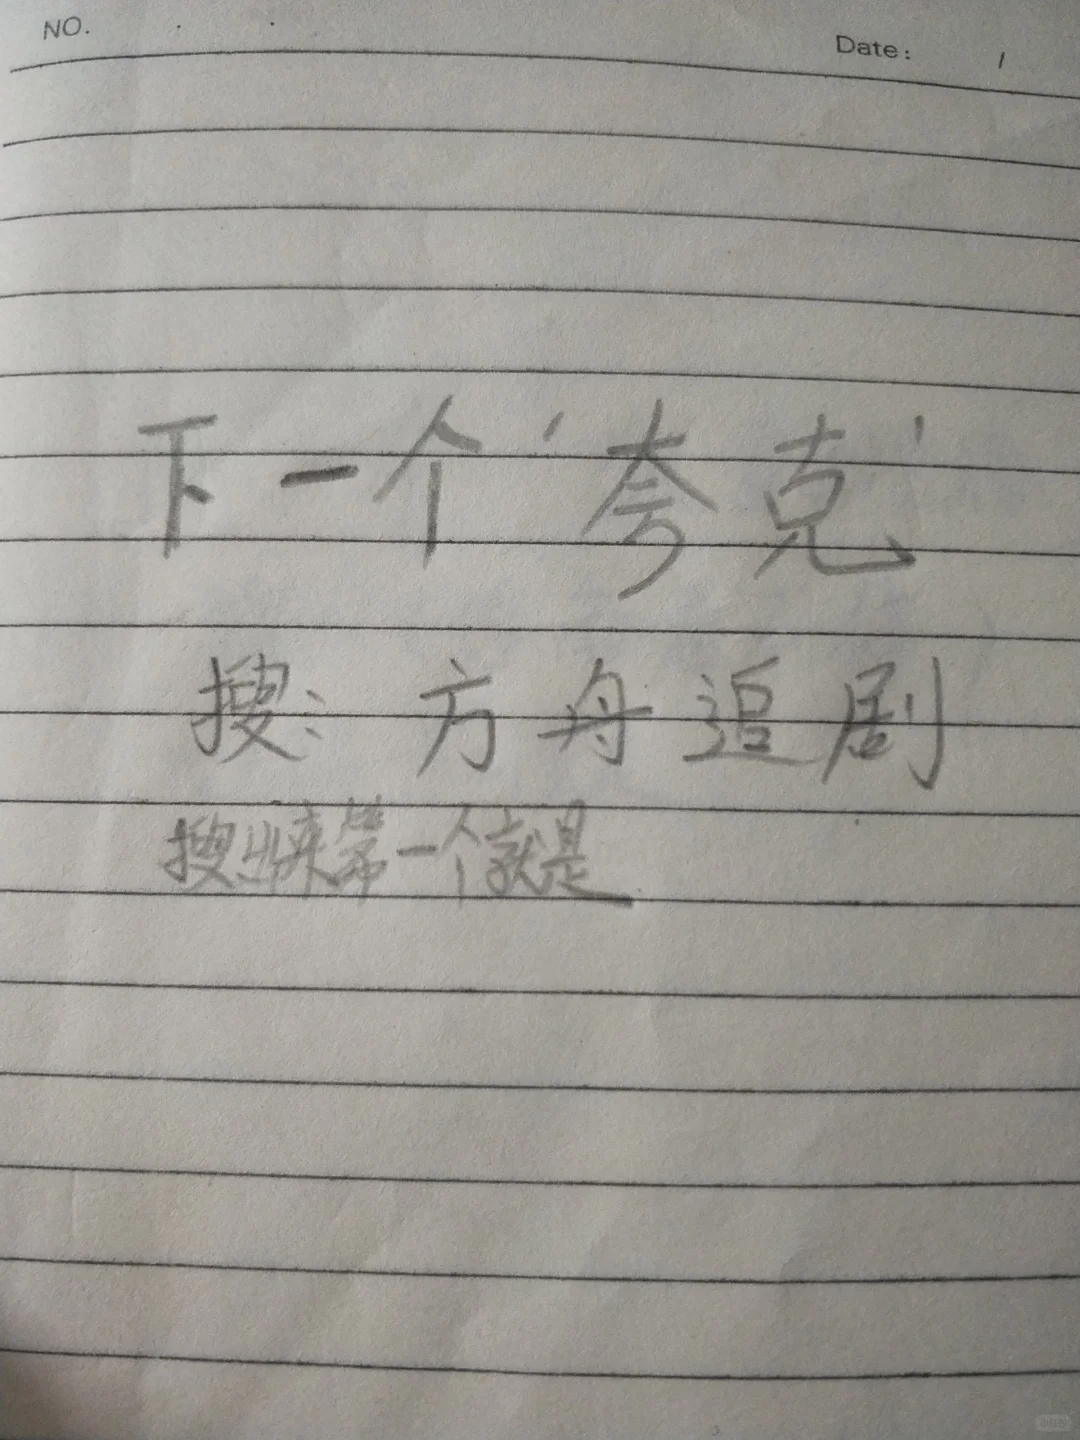 NO.
Date: /
下一个'夸克'
搜:方舟追剧
搜出来第一个就是